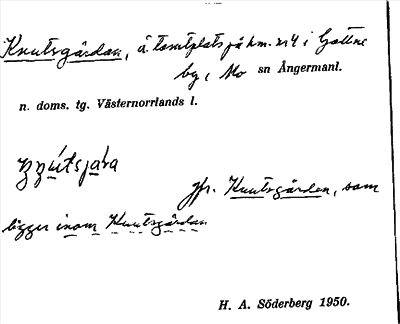 Knutsgården, å. tomtplats på hm. nr 4 i Gottne
by, Mo sn Ångermanl.
n. doms. tg. Västernorrlands l.
jfr. Knutsgården, som
ligger inom Knutsgården
H. A. Söderberg 1950.